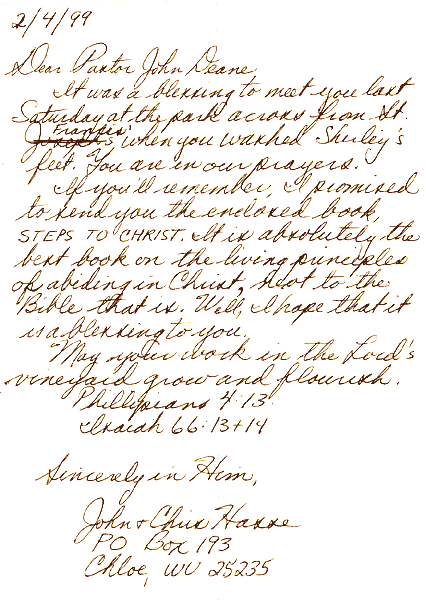 2/4/99
Dear Pastor John Deane
It was a blessing to meet you last
Saturday at the park across from St.
Francis'
Joseph's when you washed Shirley's
feet. You are in our prayers.
If you'll remember, I promised
to send you the enclosed book,
STEPS TO CHRIST. It is absolutely the
best book on the living principles
of abiding in Christ, next to the
Bible that is. Well, I hope that it
is a blessing to you.
May your work in the Lord's
vineyard grow and flourish.
Phillipians 4:13
Isaiah 66:13+14
Sincerely in Him,
John & Chris Hasse
PO Box 193
Chloe, WV 25235